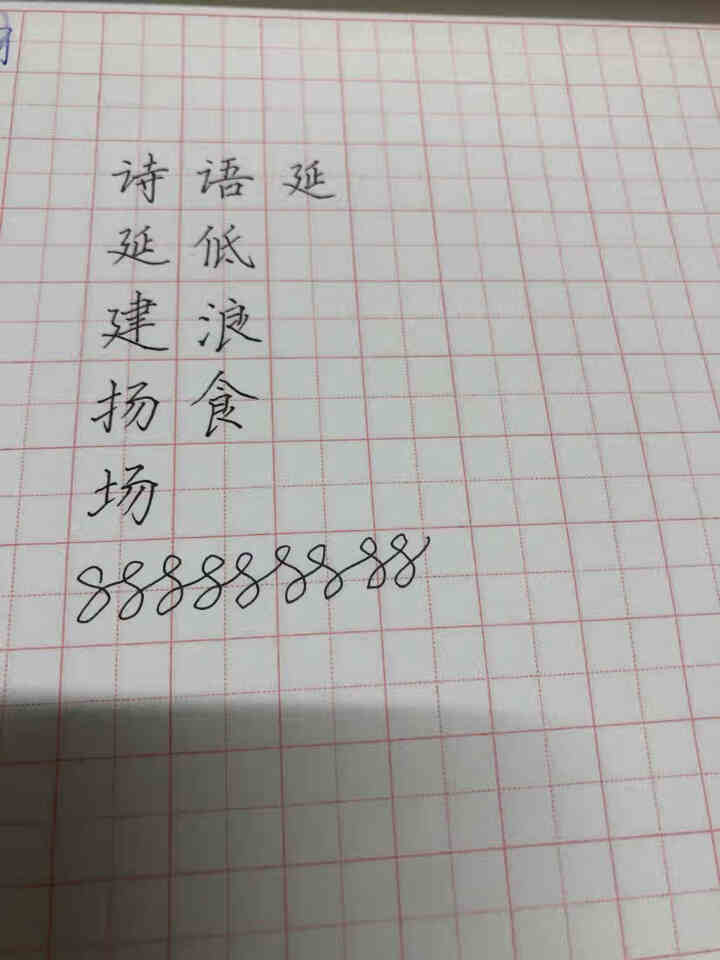 诗语延
延低
建浪
扬食
场